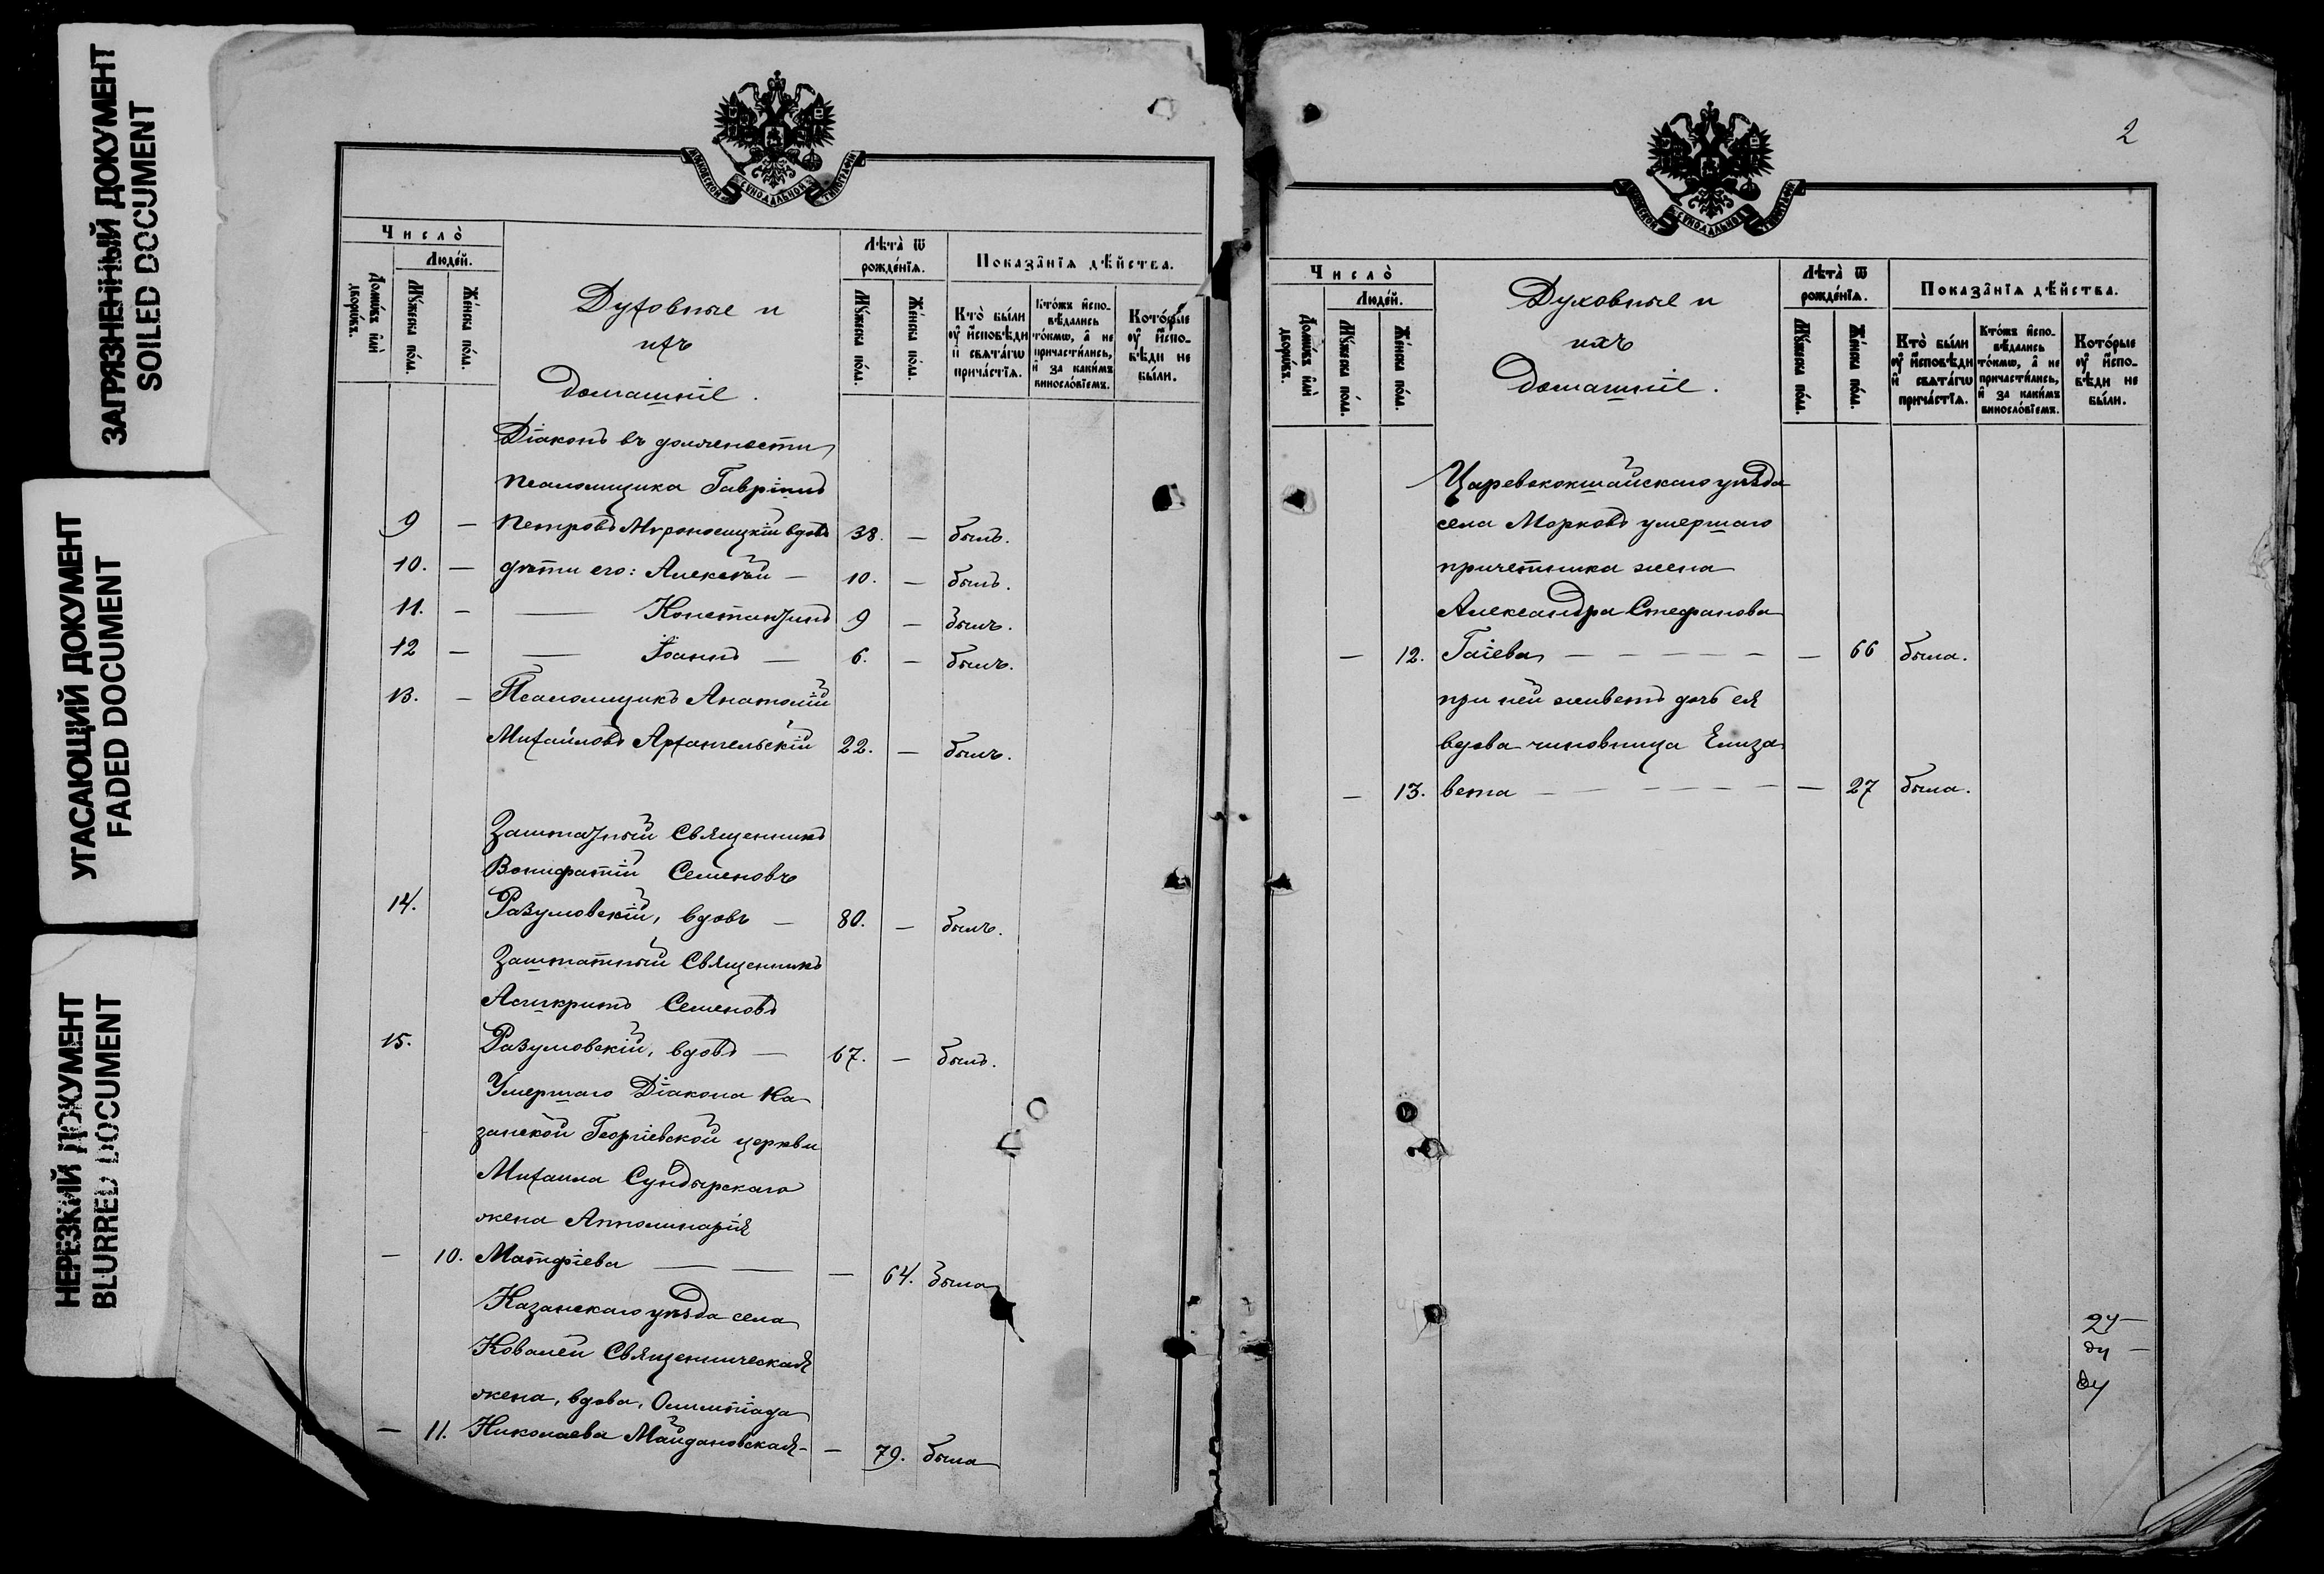 ЗАГРЯЗНЕННЫЙ ДОКУМЕНТ
SOILED DOCUMENT
УГАСАЮЩИЙ ДОКУМЕНТ
FADED DOCUMENT
НЕРЕЗКИЙ ДОКУМЕНТ
BLURRED DOCUMENT
МОСКОВСКОЙ СѴНОДАЛЬНОЙ ТИПОГРАФІИ
Число̀
Люде́й.
Домѡ́въ и҆лѝ дворѡ́въ.
Мꙋ́жеска по́ла.
Же́нска по́ла.
Духовные и
ихъ
домашніе.
Лѣта̀ ѿ рожде́нїѧ.
Мꙋ́жеска по́ла.
Же́нска по́ла.
Показа̂нїѧ дѣ́йства.
Кто̀ бы́ли оу҆ и҆сповѣди и҆ свѧта́гѡ прича́стїѧ.
Кто́жъ и҆спо-вѣдались то́кмѡ, а҆ не причасти́лись, и҆ за каки́мъ виносло́вїемъ.
Кото́рые оу҆ и҆спо-вѣди не бы́ли.
Діаконъ въ должности
псаломщика Гавріилъ
9 — Петровъ Мѵроносицкій вдовъ 38. — былъ.
10. — дѣти его: Алексѣй — 10. — былъ.
11. — — Константинъ 9 — былъ.
12 — — Іоаннъ — 6. — былъ.
13. — Псаломщикъ Анатолій
Михайловъ Архангельскій 22. — былъ.
Заштатный Священникъ
Вонифатій Семеновъ
14. Разумовскій, вдовъ — 80. — былъ.
Заштатный Священникъ
Асигкритъ Семеновъ
15. Разумовскій, вдовъ — 67. — былъ.
Умершаго Діакона Ка-
занской Георгіевской церкви
Михаила Сундырскаго
жена Апполинарія
— 10. Матфіева — — — 64. была
Казанскаго уѣзда села
Ковалей Священническая
жена, вдова, Олимпіада
— 11. Николаева Майдановская — — 79. была
2
МОСКОВСКОЙ СѴНОДАЛЬНОЙ ТИПОГРАФІИ
Число̀
Люде́й.
Домѡ́въ и҆лѝ дворѡ́въ.
Мꙋ́жеска по́ла.
Же́нска по́ла.
Духовные и
ихъ
домашніе.
Лѣта̀ ѿ рожде́нїѧ.
Мꙋ́жеска по́ла.
Же́нска по́ла.
Показа̂нїѧ дѣ́йства.
Кто̀ бы́ли оу҆ и҆сповѣди и҆ свѧта́гѡ прича́стїѧ.
Кто́жъ и҆спо-вѣдались то́кмѡ, а҆ не причасти́лись, и҆ за каки́мъ виносло́вїемъ.
Кото́рые оу҆ и҆спо-вѣди не бы́ли.
Царевококшайскаго уѣзда
села Морковъ умершаго
причетника жена
Александра Стефанова
— 12. Гаіева — — — — — — 66 была.
при ней живетъ дочь ея
вдова чиновница Елиза-
— 13. вета — — — — — — — 27 была.